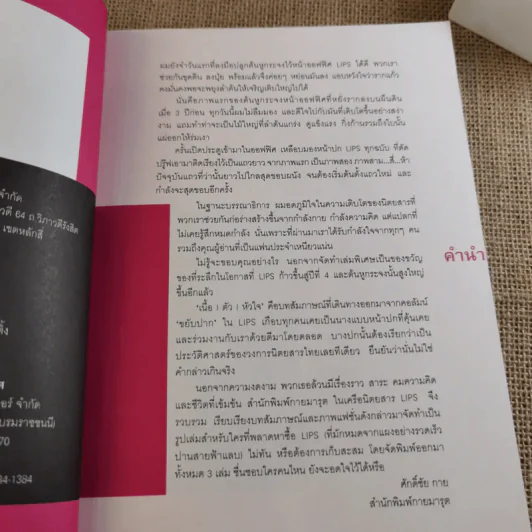 จำกัด
วดี 64 ถ.วิภาวดีรังสิต
เขตหลักสี่
ตั้ง
ศ
อร์ จำกัด
บรมราชชนนี)
70
84-1384
ผมยังจำวันแรกที่ลงมือปลูกต้นหูกระจงไว้หน้าออฟฟิศ LIPS ได้ดี พวกเรา
ช่วยกันขุดดิน ลงปุ๋ย พร้อมแล้วจึงค่อยๆ หย่อนมันลง แอบหวังใจว่ารากแก้ว
คงมั่นคงพอจะพยุงลำต้นให้เจริญเติบใหญ่ไปได้
นั่นคือภาพแรกของต้นหูกระจงหน้าออฟฟิศที่หยั่งรากลงบนผืนดิน
เมื่อ 3 ปีก่อน ทุกวันนี้ผมไม่ลืมมอง และดีใจไปกับมันที่เติบโตขึ้นอย่างสง่า
งาม แถมทำท่าจะเป็นไม้ใหญ่ที่ลำต้นแกร่ง ดูแข็งแรง กิ่งก้านรวมถึงใบนั้น
แผ่ออกให้ร่มเงา
ครั้นเปิดประตูเข้ามาในออฟฟิศ เหลือบมองหน้าปก LIPS ทุกฉบับ ที่ตัด
ปรู๊ฟเอามาติดเรียงไว้เป็นแถวยาว จากภาพแรก เป็นภาพสอง ภาพสาม...สี่...ห้า
ปัจจุบันแถวที่ว่านั้นยาวไปไกลสุดขอบผนัง จนต้องเริ่มต้นตั้งแถวใหม่ และ
กำลังจะสุดขอบอีกครั้ง
ในฐานะบรรณาธิการ ผมอดภูมิใจในความเติบโตของนิตยสารที่
พวกเราช่วยกันก่อร่างสร้างขึ้นจากกำลังกาย กำลังความคิด แต่แปลกที่
ไม่เคยรู้สึกหมดกำลัง นั่นเพราะที่ผ่านมาเราได้รับกำลังใจจากทุกๆ คน
รวมถึงคุณผู้อ่านที่เป็นแฟนประจำเหนียวแน่น
ไม่รู้จะขอบคุณอย่างไร นอกจากจัดทำเล่มพิเศษเป็นของขวัญ
ของที่ระลึกในโอกาสที่ LIPS ก้าวขึ้นสู่ปีที่ 4 และต้นหูกระจงนั้นสูงใหญ่
ขึ้นอีกแล้ว
"เนื้อ | ตัว | หัวใจ" คือบทสัมภาษณ์ที่เดินทางออกมาจากคอลัมน์
"ขยับปาก" ใน LIPS เกือบทุกคนเคยเป็นนางแบบหน้าปกที่คุ้นเคย
และร่วมงานกับเราด้วยดีมาโดยตลอด บางปกนั้นต้องเรียกว่าเป็น
ประวัติศาสตร์ของวงการนิตยสารไทยเลยทีเดียว ยืนยันว่านั่นไม่ใช่
คำกล่าวเกินจริง
นอกจากความงดงาม พวกเธอล้วนมีเรื่องราว สาระ คมความคิด
และชีวิตที่เข้มข้น สำนักพิมพ์กายมารุต ในเครือนิตยสาร LIPS จึง
รวบรวม เรียบเรียงบทสัมภาษณ์และภาพแฟชั่นดังกล่าวมาจัดทำเป็น
รูปเล่มสำหรับใครที่พลาดหาซื้อ LIPS (ที่มักหมดจากแผงอย่างรวดเร็ว
ปานสายฟ้าแลบ) ไม่ทัน หรือต้องการเก็บสะสม โดยจัดพิมพ์ออกมา
ทั้งหมด 3 เล่ม ชื่นชอบใครคนไหน ยังจะอดใจไว้ได้หรือ
ศักดิ์ชัย กาย
สำนักพิมพ์กายมารุต
คำนำ